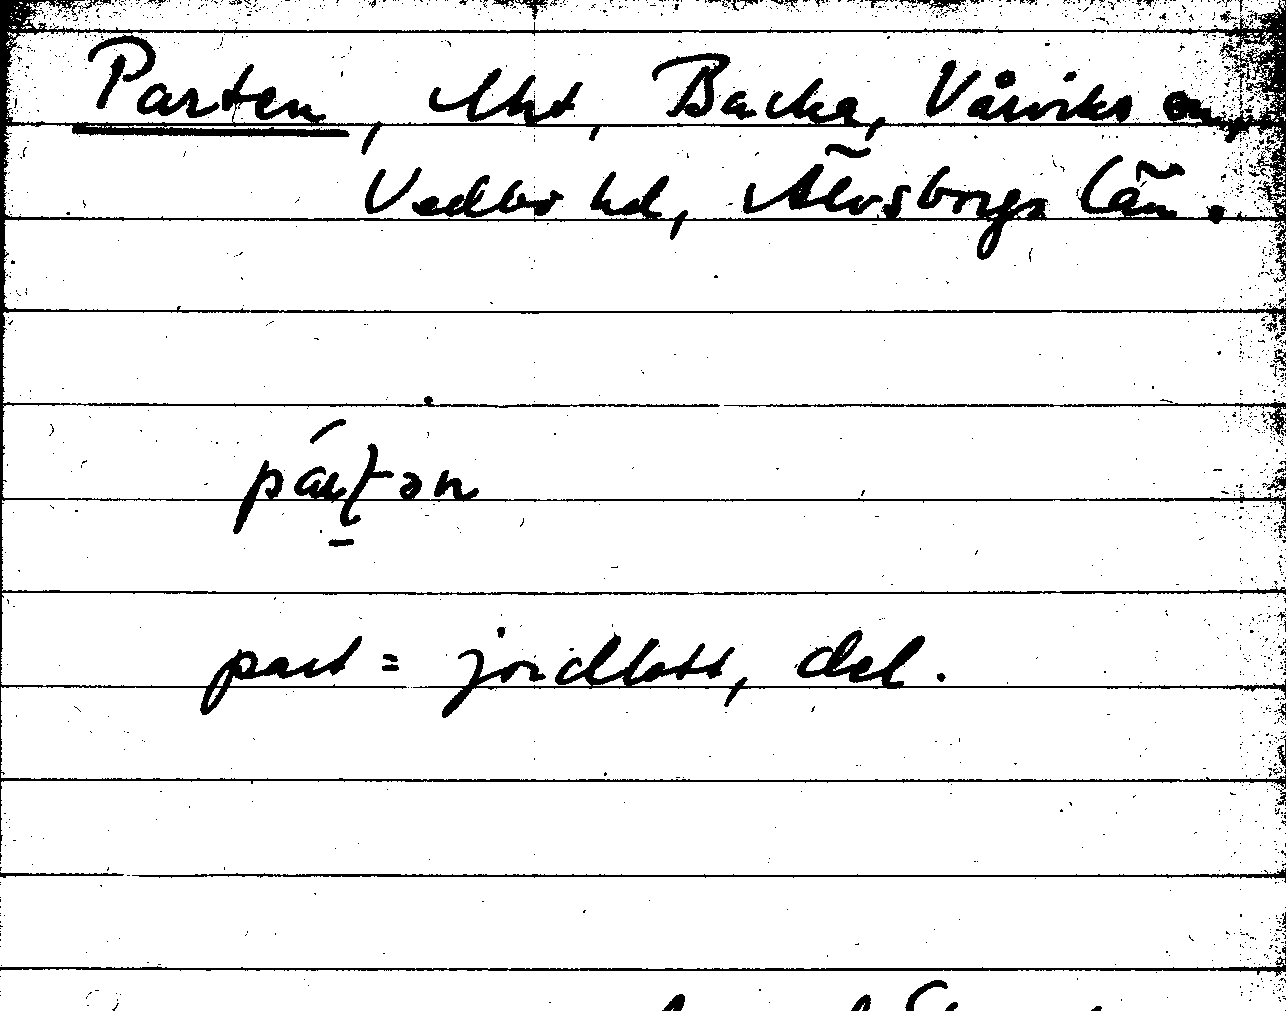 Parten, lht, Backa, Vårviks sn,
Vedbo hd, Älvsborgs län.
part = jordlott, del.